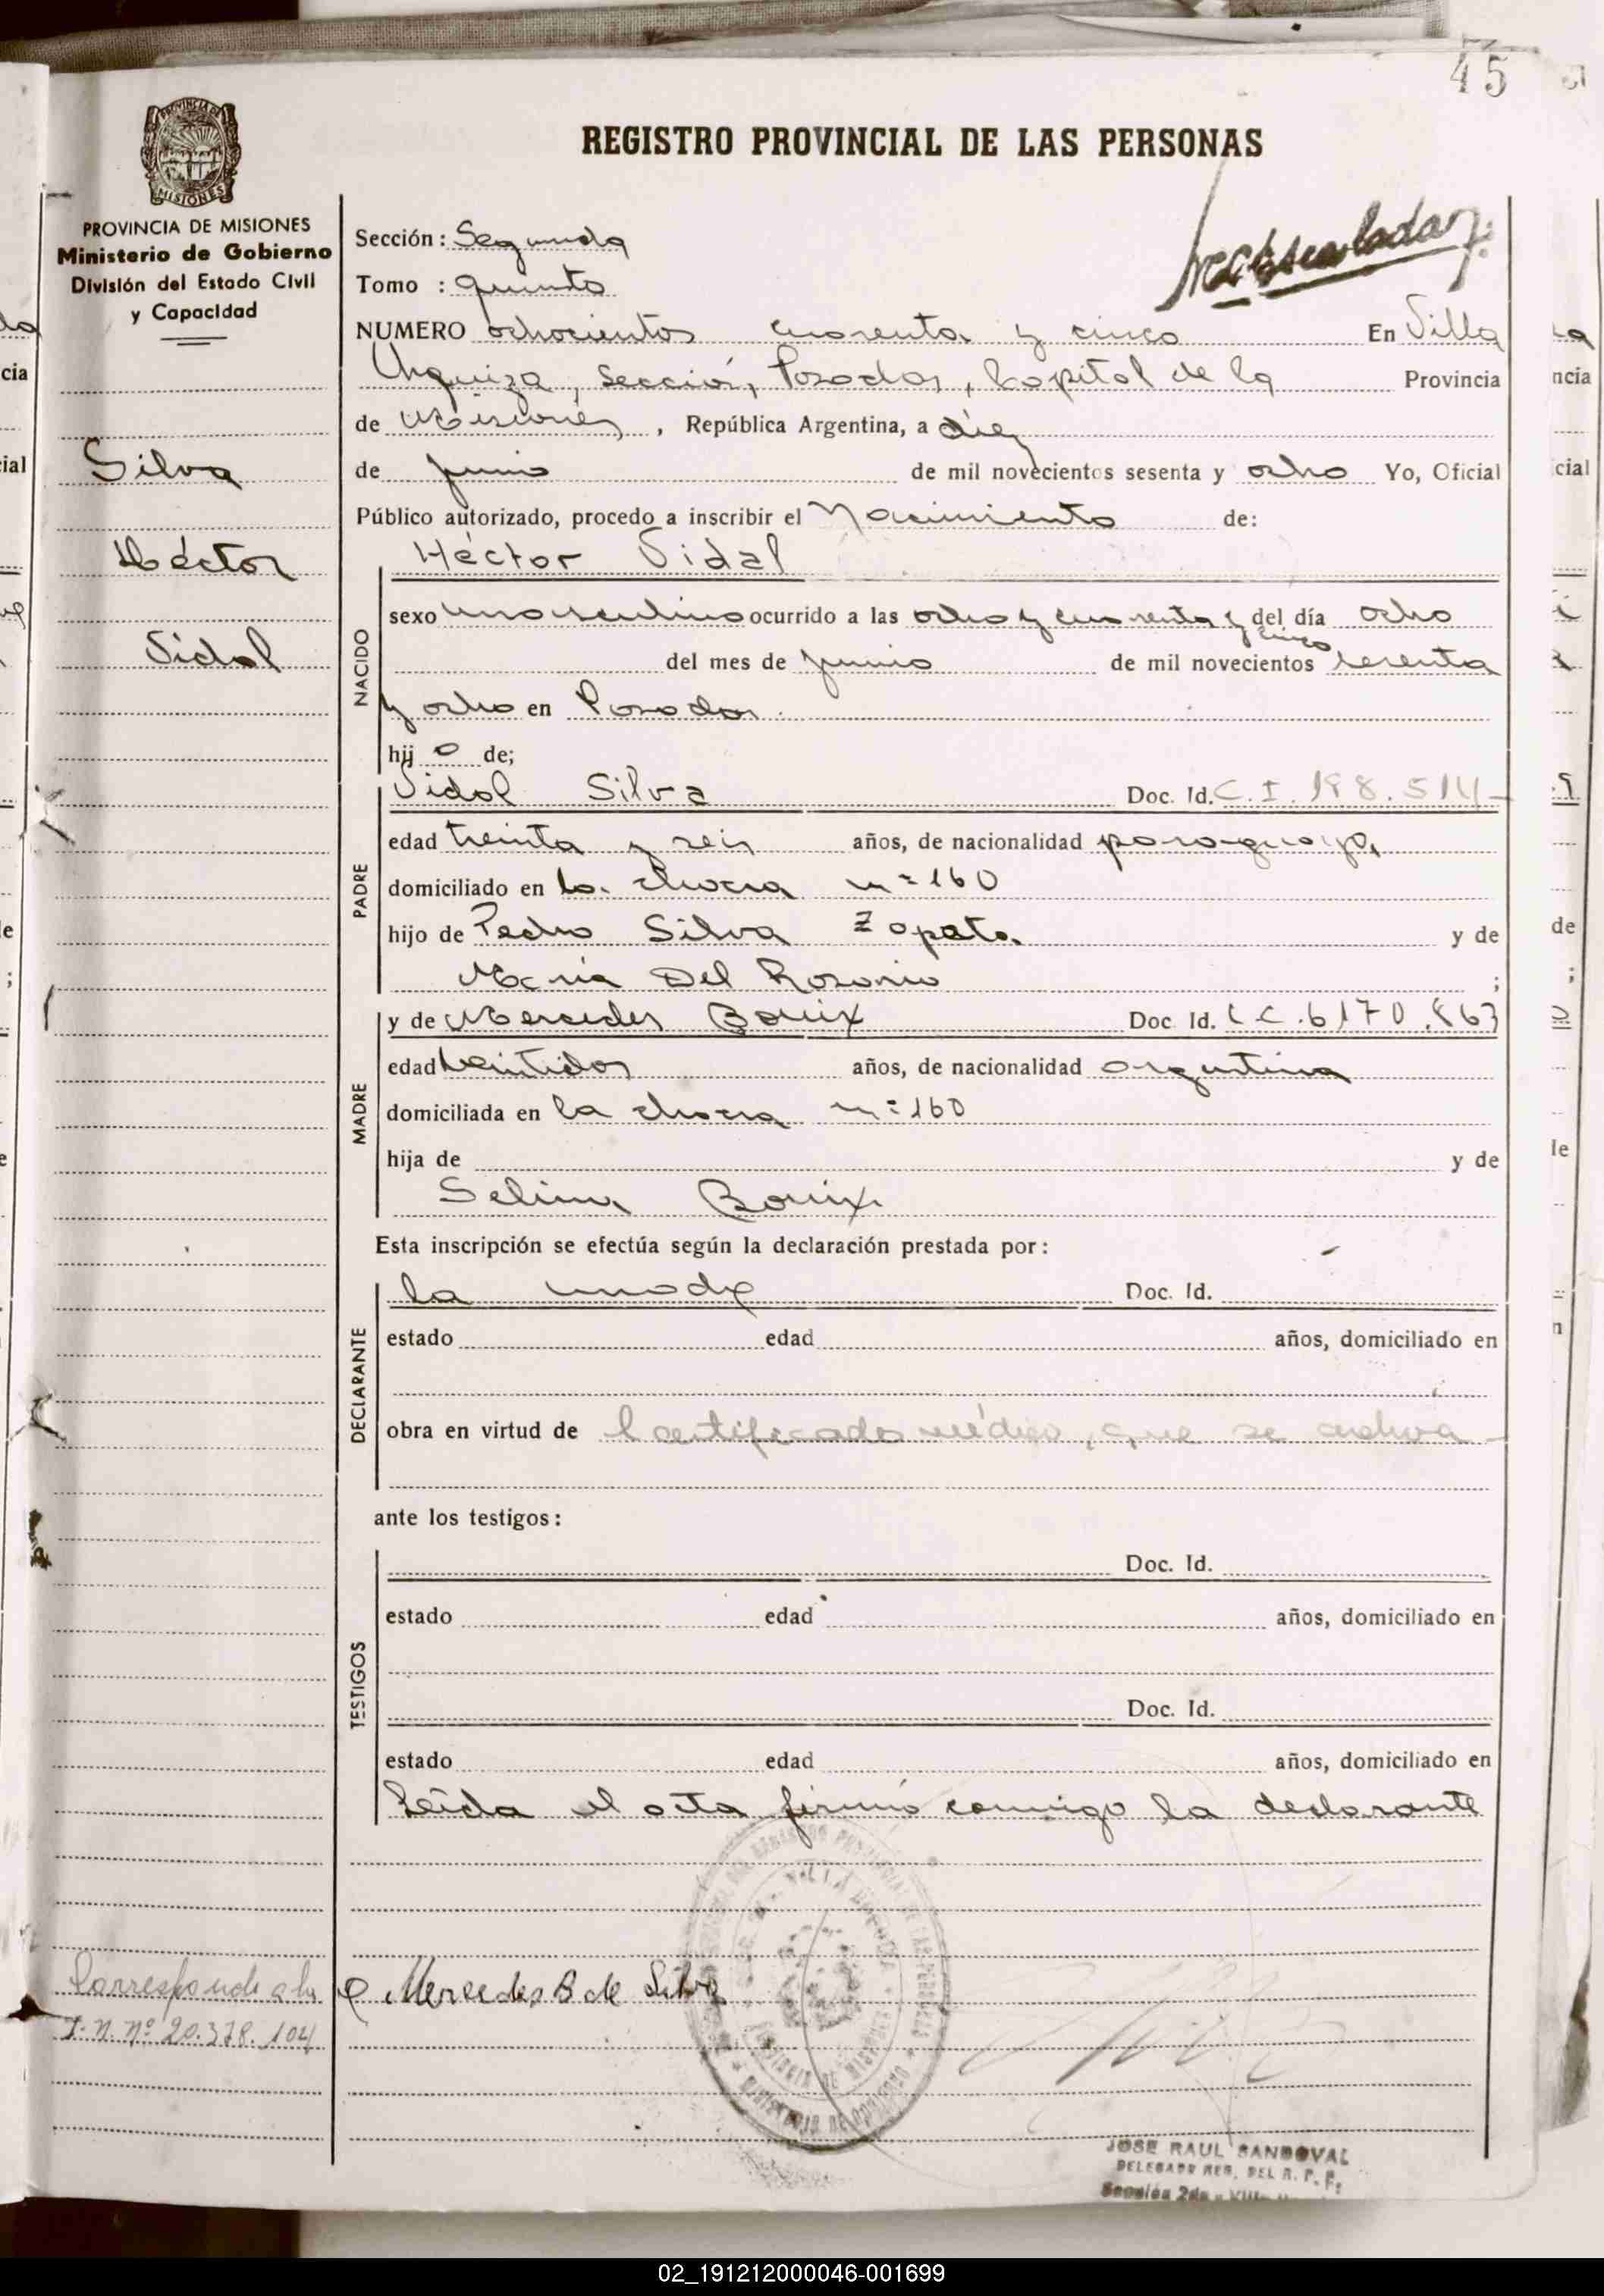 45
REGISTRO PROVINCIAL DE LAS PERSONAS
PROVINCIA DE MISIONES
Ministerio de Gobierno
División del Estado Civil
y Capacidad
Silva
Héctor
Vidal
Sección: Segunda
Tomo : quinto
NUMERO ochocientos cuarenta y cinco En Villa
Urquiza, Sección, Posadas, Capital de la Provincia
de Misiones, República Argentina, a diez
de junio de mil novecientos sesenta y ocho Yo, Oficial
Público autorizado, procedo a inscribir el Nacimiento de:
NACIDO
Héctor Vidal
sexo masculino ocurrido a las ocho y cuarenta y cinco del día ocho
del mes de junio de mil novecientos sesenta
y ocho en Posadas.
hij o de;
PADRE
Vidal Silva Doc. Id. C.I. 198.514
edad treinta y seis años, de nacionalidad paraguaya,
domiciliado en la chacra nº 160
hijo de Pedro Silva Zapata y de
María Del Rosario ;
MADRE
y de Mercedes Bouix Doc Id. L C. 6170.863
edad veintidos años, de nacionalidad argentina
domiciliada en la chacra nº 160
hija de y de
Selima Bouix
Esta inscripción se efectúa según la declaración prestada por:
DECLARANTE
la madre Doc. Id.
estado edad años, domiciliado en
obra en virtud de Certificado médico, que se archiva
ante los testigos:
TESTIGOS
Doc. Id.
estado edad años, domiciliado en
Doc. Id.
estado edad años, domiciliado en
Leída el acta firmó conmigo la declarante
Corresponde a la
I. N. Nº 20.378.104
Mercedes B de Silva
JOSE RAUL SANDOVAL
DELEGADO REG. DEL R. P. P.
Sección 2da - Villa
02_191212000046-001699